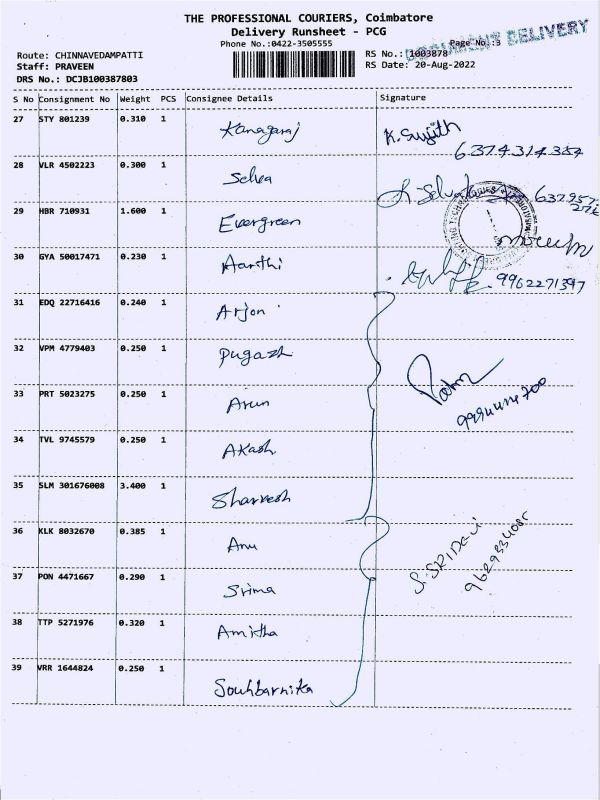 THE PROFESSIONAL COURIERS, Coimbatore
Delivery Runsheet - PCG
Phone No.:0422-3505555
DOCUMENT DELIVERY
Page No.:3
Route: CHINNAVEDAMPATTI
RS No.: 1003878
Staff: PRAVEEN
RS Date: 20-Aug-2022
DRS No.: DCJB100387803
S No Consignment No Weight PCS Consignee Details Signature
27 STY 801239 0.310 1 Kanagaraj K. Sujith
6374314384
28 VLR 4502223 0.300 1 Selva
29 HBR 710931 1.600 1 Evergreen
30 GYA 50017471 0.230 1 Aarthi 9962271397
31 EDQ 22716416 0.240 1 Arjon
32 VPM 4779403 0.250 1 Pugazh
33 PRT 5023275 0.250 1 Arun
34 TVL 9745579 0.250 1 Akash
35 SLM 301676008 3.400 1 Sharvesh
36 KLK 8032670 0.385 1 Anu
S. SRIDEVI
37 PON 4471667 0.290 1 Srima
38 TTP 5271976 0.320 1 Amitha
39 VRR 1644824 0.250 1 Souhbarnika